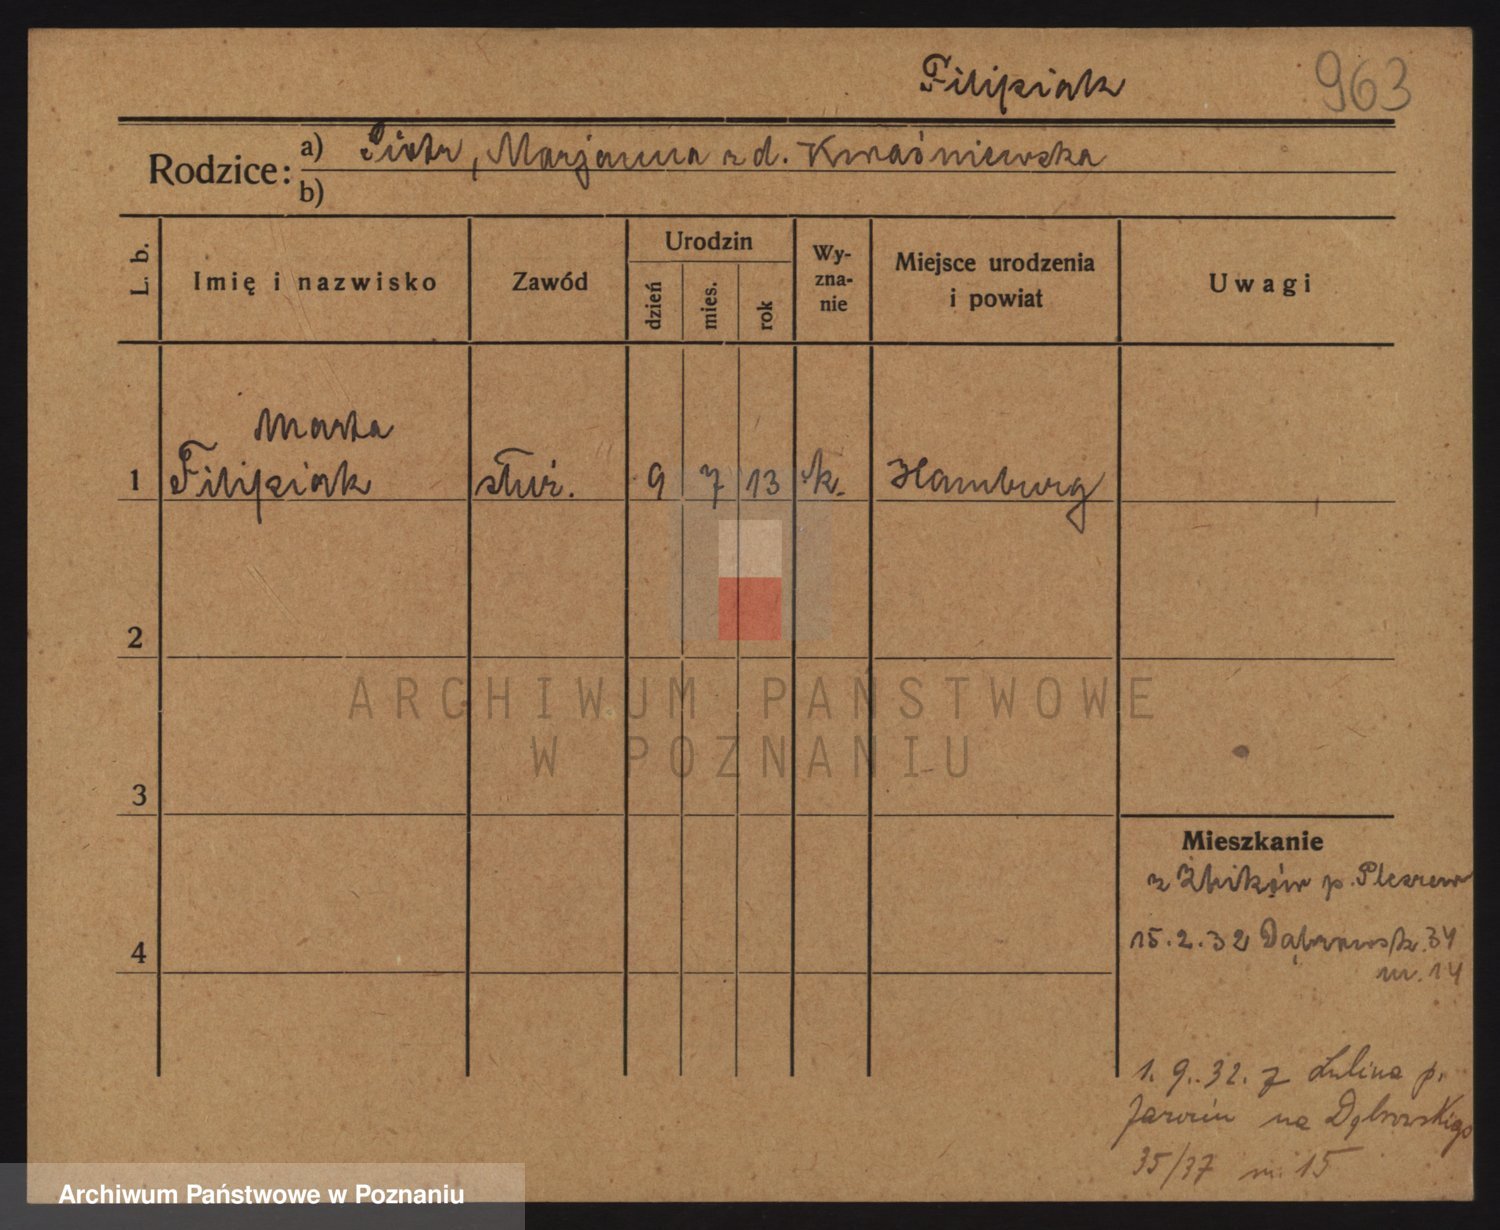 Filipiak
963
Rodzice: a) Piotr, Marjanna z d. Kwaśniewska
b)
L. b.
Imię i nazwisko
Zawód
Urodzin
dzień
mies.
rok
Wy-
zna-
nie
Miejsce urodzenia
i powiat
Uwagi
Marta
1 Filipiak służ. 9 7 13 k. Hamburg
2
3
4
Mieszkanie
z p. Pleszew
15.2.32 Dąbrowsk. 34
m. 14
1.9.32. z p.
Jarocin na Dąbrowskigo
35/37 m. 15
ARCHIWUM PAŃSTWOWE
W POZNANIU
Archiwum Państwowe w Poznaniu